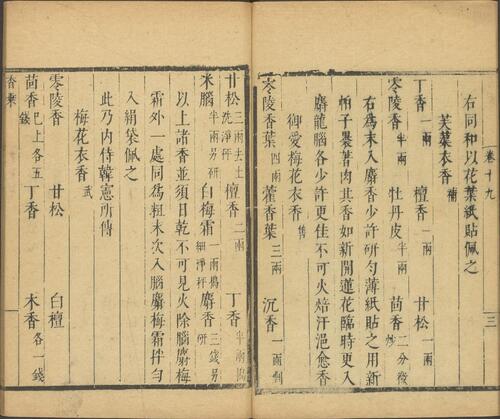 卷十九
三
右同和以花葉紙貼佩之
芙蕖衣香 補
丁香 一兩 檀香 一兩 甘松 一兩
零陵香 半兩 牡丹皮 半兩 茴香 二分微炒
右為末入麝香少許研勻薄紙貼之用新
帕子裹著肉其香如新開蓮花臨時更入
麝龍腦各少許更佳不可火焙汗浥愈香
御愛梅花衣香 售
零陵香葉 四兩 藿香葉 三兩 沉香 一兩剉
甘松 三兩去土洗淨秤 檀香 二兩 丁香 半兩搗
米腦 半兩另研 白梅霜 一兩搗細淨秤 麝香 三錢另研
以上諸香並須日乾不可見火除腦麝梅
霜外一處同為麤末次入腦麝梅霜拌勻
入絹袋佩之
此乃內侍韓憲所傳
梅花衣香 武
零陵香 甘松 白檀
茴香 巳上各五錢 丁香 木香 各一錢
香乘